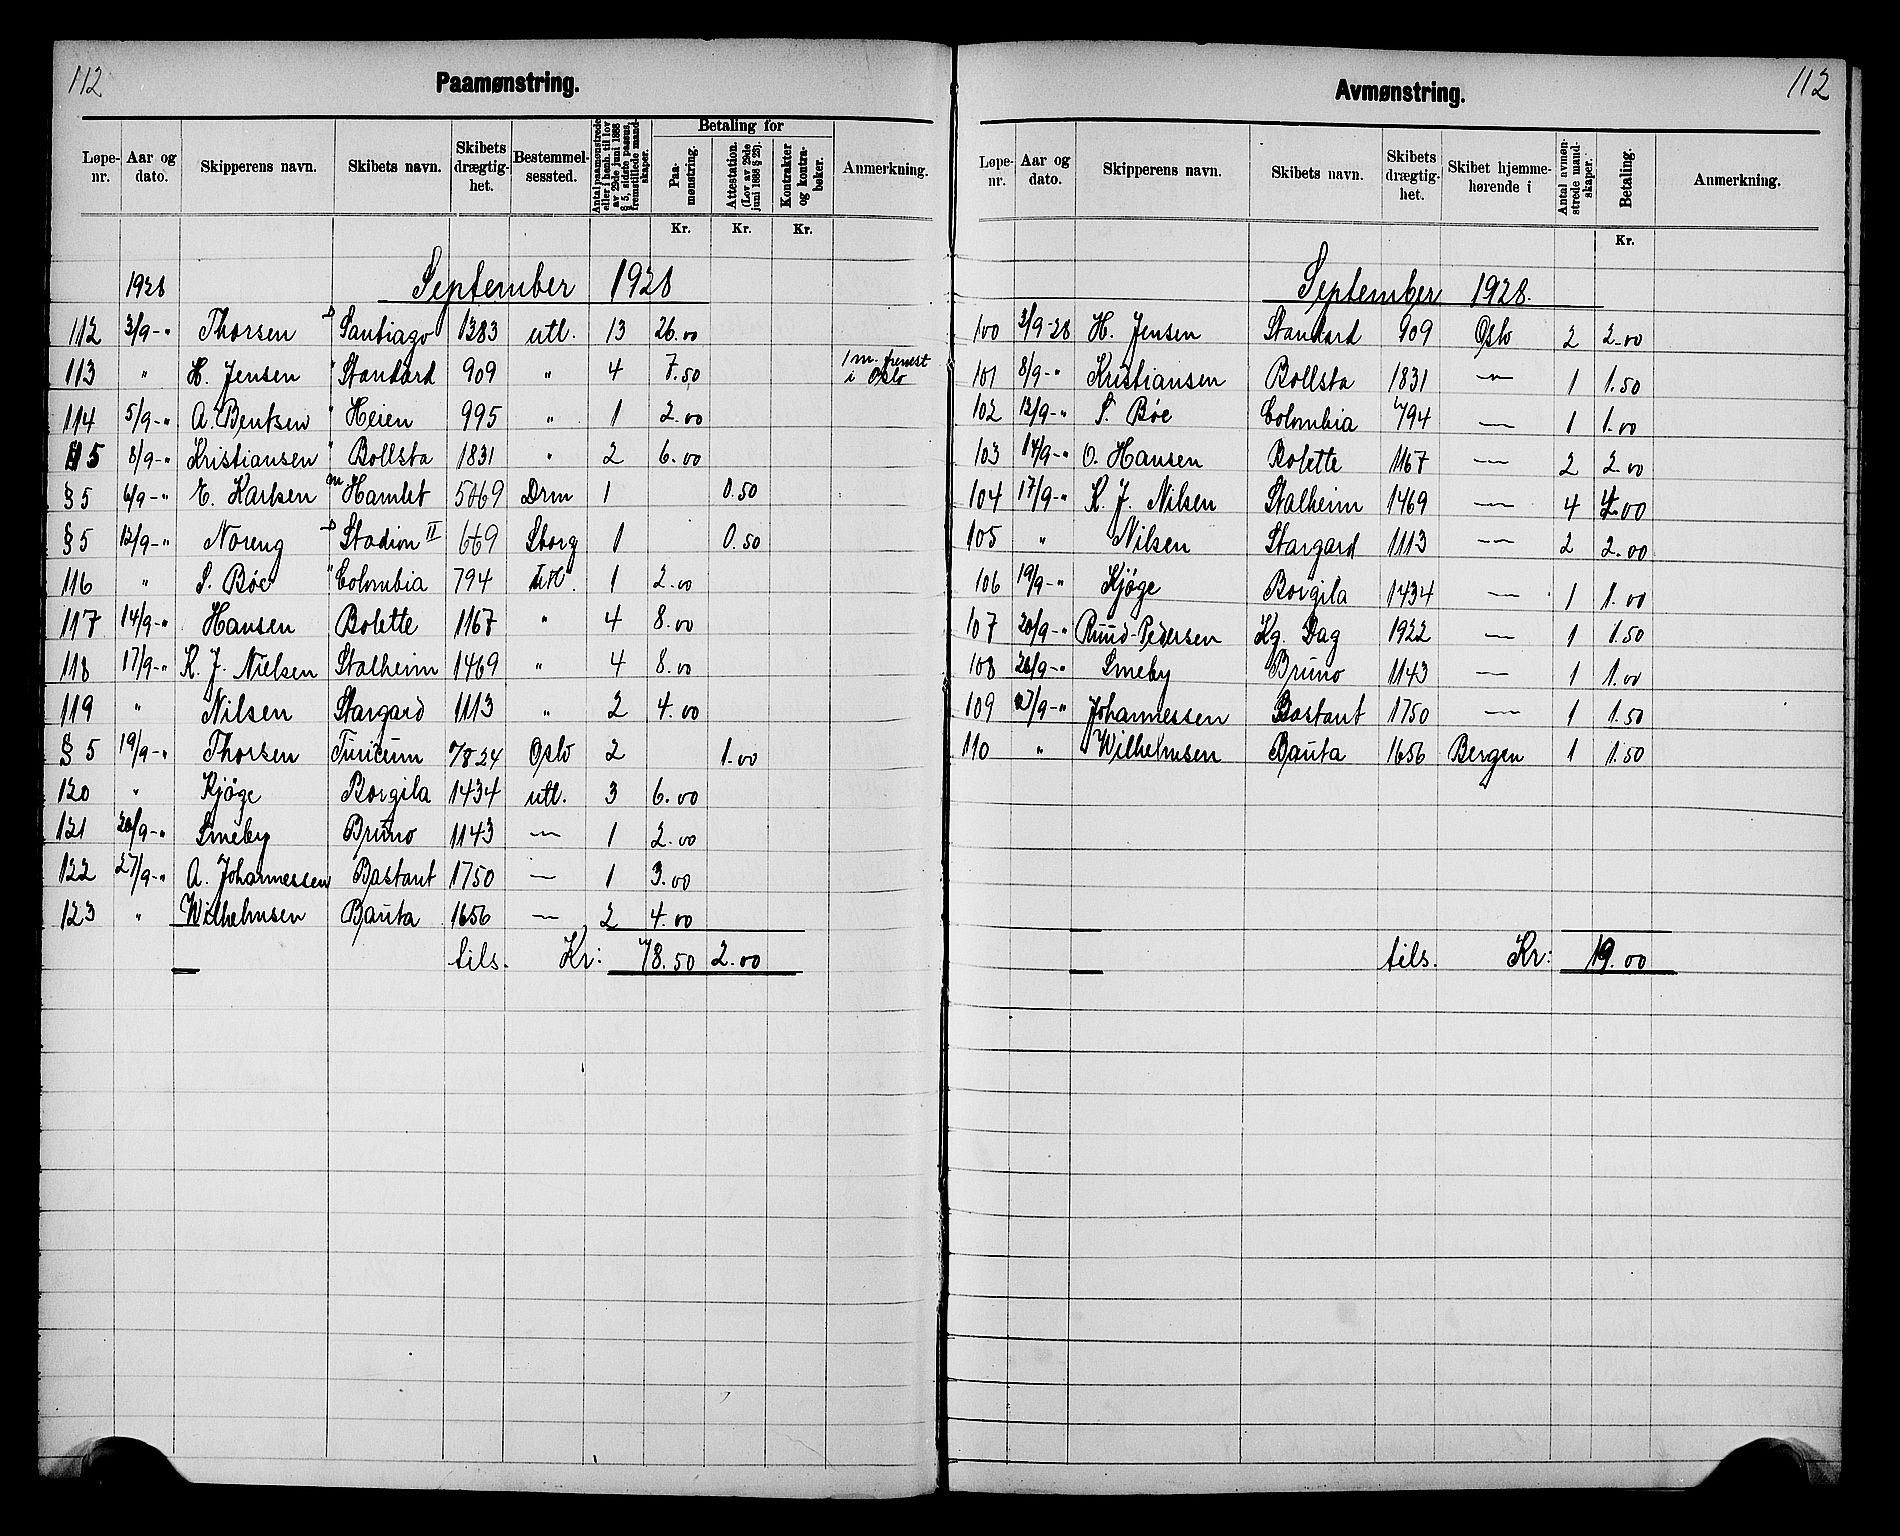 112
Paamønstring.
Løpe-nr. Aar og dato. Skipperens navn. Skibets navn. Skibets drægtig-het. Bestemmel-sessted. Antal paamønstrede eller i henh. til lov av 29de juni 1888 § 5, sidste passus, fremstillede mand-skaper. Betaling for Paa-mønstring. Attestation. (Lov av 29de juni 1888 § 23). Kontrakter og kontra-bøker. Anmerkning.
Kr. Kr. Kr.
1928 September 1928
112 3/9-" Thorsen D Santiago 1383 utl. 13 26.00
113 " H. Jensen " Standard 909 " 4 7.50 1 m. frenest i Oslo
114 5/9-" A. Bentsen " Heien 995 " 1 2.00
115 8/9-" Kristiansen " Bollsta 1831 " 2 6.00
§ 5 6/9-" E. Karlsen m Hamlet 5069 Drm 1 0.50
§ 5 12/9-" Noreng D Stadion II 669 Sborg 1 0.50
116 " S. Bøe " Colombia 794 utl. 1 2.00
117 14/9-" Hansen Bolette 1167 " 4 8.00
118 17/9-" K. J. Nielsen Stalheim 1469 " 4 8.00
119 " Nilsen Stargard 1113 " 2 4.00
§ 5 19/9-" Thorsen Turicum 7824 Oslo 2 1.00
120 " Kjøge Borgila 1434 utl. 3 6.00
121 26/9-" Smeby Bruno 1143 — 1 2.00
122 27/9-" A. Johannessen Bastant 1750 — 1 3.00
123 " Wilhelmsen Bauta 1656 — 2 4.00
tils. Kr: 78.50 2.00
112
Avmønstring.
Løpe-nr. Aar og dato. Skipperens navn. Skibets navn. Skibets drægtig-het. Skibet hjemme-hørende i Antal avmøn-strede mand-skaper. Betaling. Anmerkning.
Kr.
September 1928.
100 3/9-28 H. Jensen Standard 909 Oslo 2 2.00
101 8/9-" Kristiansen Bollsta 1831 — 1 1.50
102 12/9-" S. Bøe Colombia 794 — 1 1.00
103 14/9-" O. Hansen Bolette 1167 — 2 2.00
104 17/9-" K. J. Nilsen Stalheim 1469 — 4 4.00
105 " Nilsen Stargard 1113 — 2 2.00
106 19/9-" Kjøge Borgila 1434 — 1 1.00
107 20/9-" Ruud-Pedersen Kg. Dag 1922 — 1 1.50
108 26/9-" Smeby Bruno 1143 — 1 1.00
109 27/9-" Johannessen Bastant 1750 — 1 1.50
110 " Wilhelmsen Bauta 1656 Bergen 1 1.50
tils. Kr: 19.00